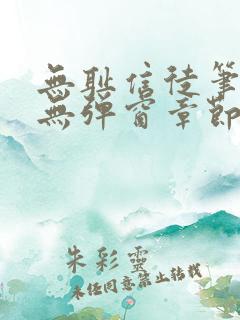 無耻信徒筆
無彈窗章節
朱彩靈
未经同意禁止转载